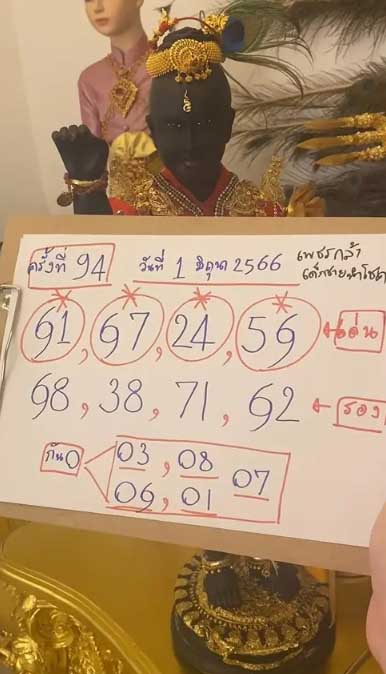 ครั้งที่ 94 วันที่ 1 มิถุนา 2566 เพชรกล้า
เด็กชายนำโชค
61, 67, 24, 56 ← เด่น
68, 38, 71, 62 ← รอง
กัน 0 03, 08 07
06, 01